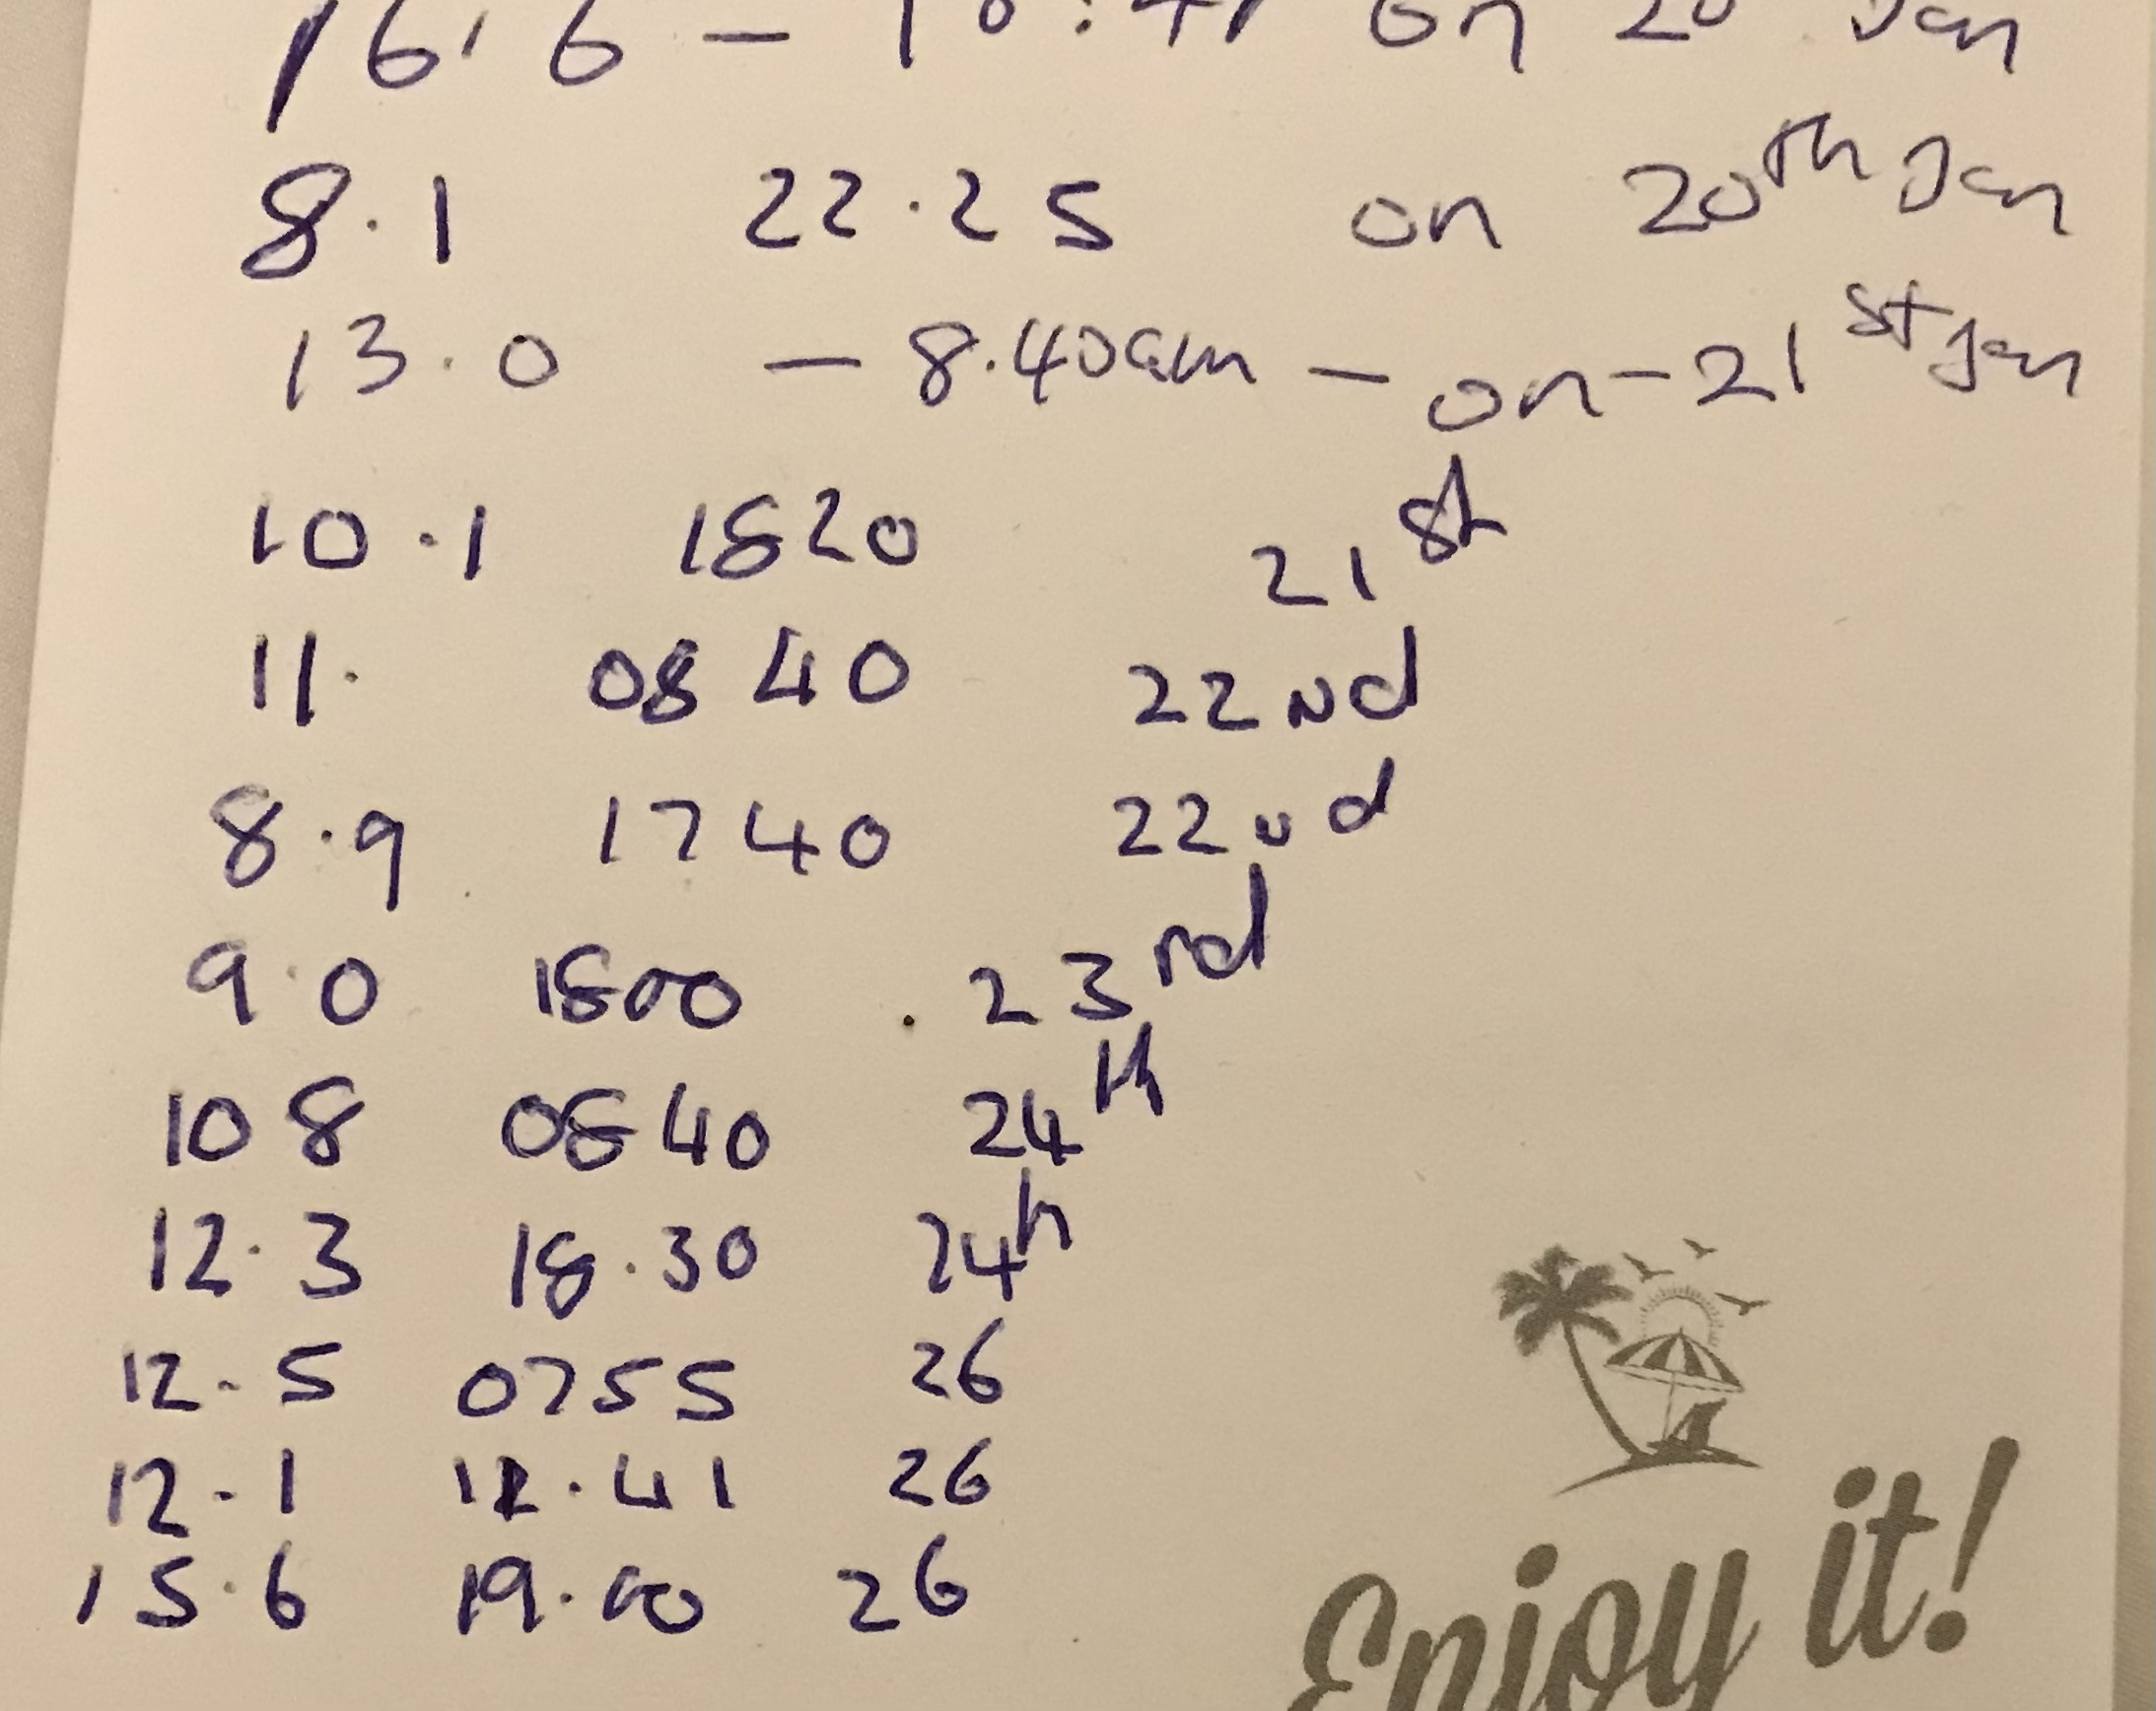 16.6 – on 20 Jan
8.1 22.25 on 20th Jan
13.0 – 8.40am – on – 21st Jan
10.1 1820 21st
11. 0840 22nd
8.9 1740 22nd
9.0 1800 . 23rd
10 8 0840 24th
12.3 18.30 24th
12.5 0755 26
12.1 12.41 26
15.6 19.00 26
Enjoy it!